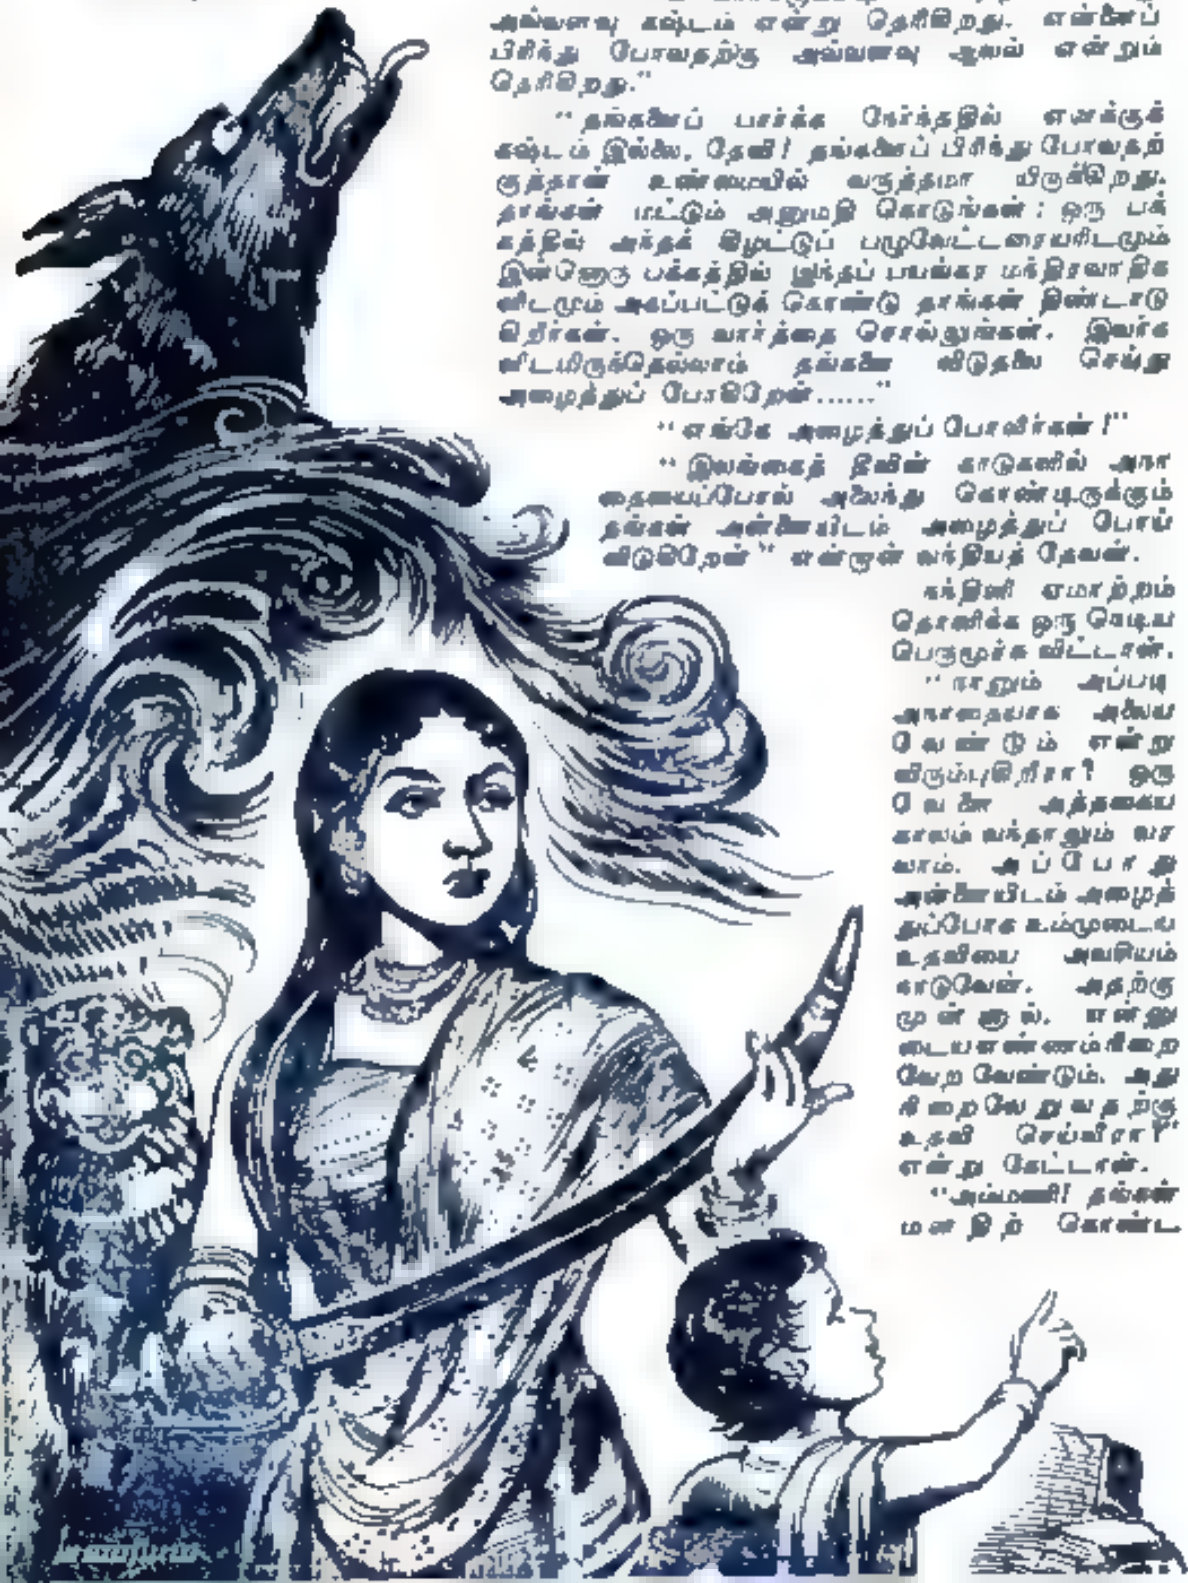 அவ்வளவு கஷ்டம் என்று தெரிகிறது. என்னைப்
பிரிந்து போவதற்கு அவ்வளவு ஆவல் என்றும்
தெரிகிறது."
"தங்களைப் பார்க்க நேர்ந்ததில் எனக்குக்
கஷ்டம் இல்லை, தேவி! தங்களைப் பிரிந்து போவதற்
குத்தான் உண்மையில் வருத்தமா யிருக்கிறது.
தாங்கள் மட்டும் அனுமதி கொடுங்கள்; ஒரு பக்
கத்தில் அந்தக் கிழட்டுப் பழுவேட்டரையரிடமும்
இன்னொரு பக்கத்தில் இந்தப் பயங்கர மந்திரவாதிக
ளிடமும் அகப்பட்டுக் கொண்டு தாங்கள் திண்டாடு
கிறீர்கள். ஒரு வார்த்தை சொல்லுங்கள். இவர்க
ளிடமிருந்தெல்லாம் தங்களை விடுதலை செய்து
அழைத்துப் போகிறேன்......"
"எங்கே அழைத்துப் போவீர்கள்!"
"இலங்கைத் தீவின் காடுகளில் அநா
தையைப்போல் அலைந்து கொண்டிருக்கும்
தங்கள் அன்னையிடம் அழைத்துப் போய்
விடுகிறேன்" என்றான் வந்தியத் தேவன்.
நந்தினி ஏமாற்றம்
தொனிக்க ஒரு நெடிய
பெருமூச்சு விட்டாள்.
"நானும் அப்படி
அநாதையாக அலைய
வேண்டும் என்று
விரும்புகிறீரா? ஒரு
வேளை அத்தகைய
காலம் வந்தாலும் வர
லாம். அப்போது
அன்னையிடம் அழைத்
துப்போக உம்முடைய
உதவியை அவசியம்
நாடுவேன். அதற்கு
முன்னால், என்னு
டைய எண்ணம் நிறை
வேற வேண்டும். அது
நிறைவேறுவதற்கு
உதவி செய்வீரா?"
என்று கேட்டாள்.
"அம்மணி! தங்கள்
மனதிற் கொண்ட